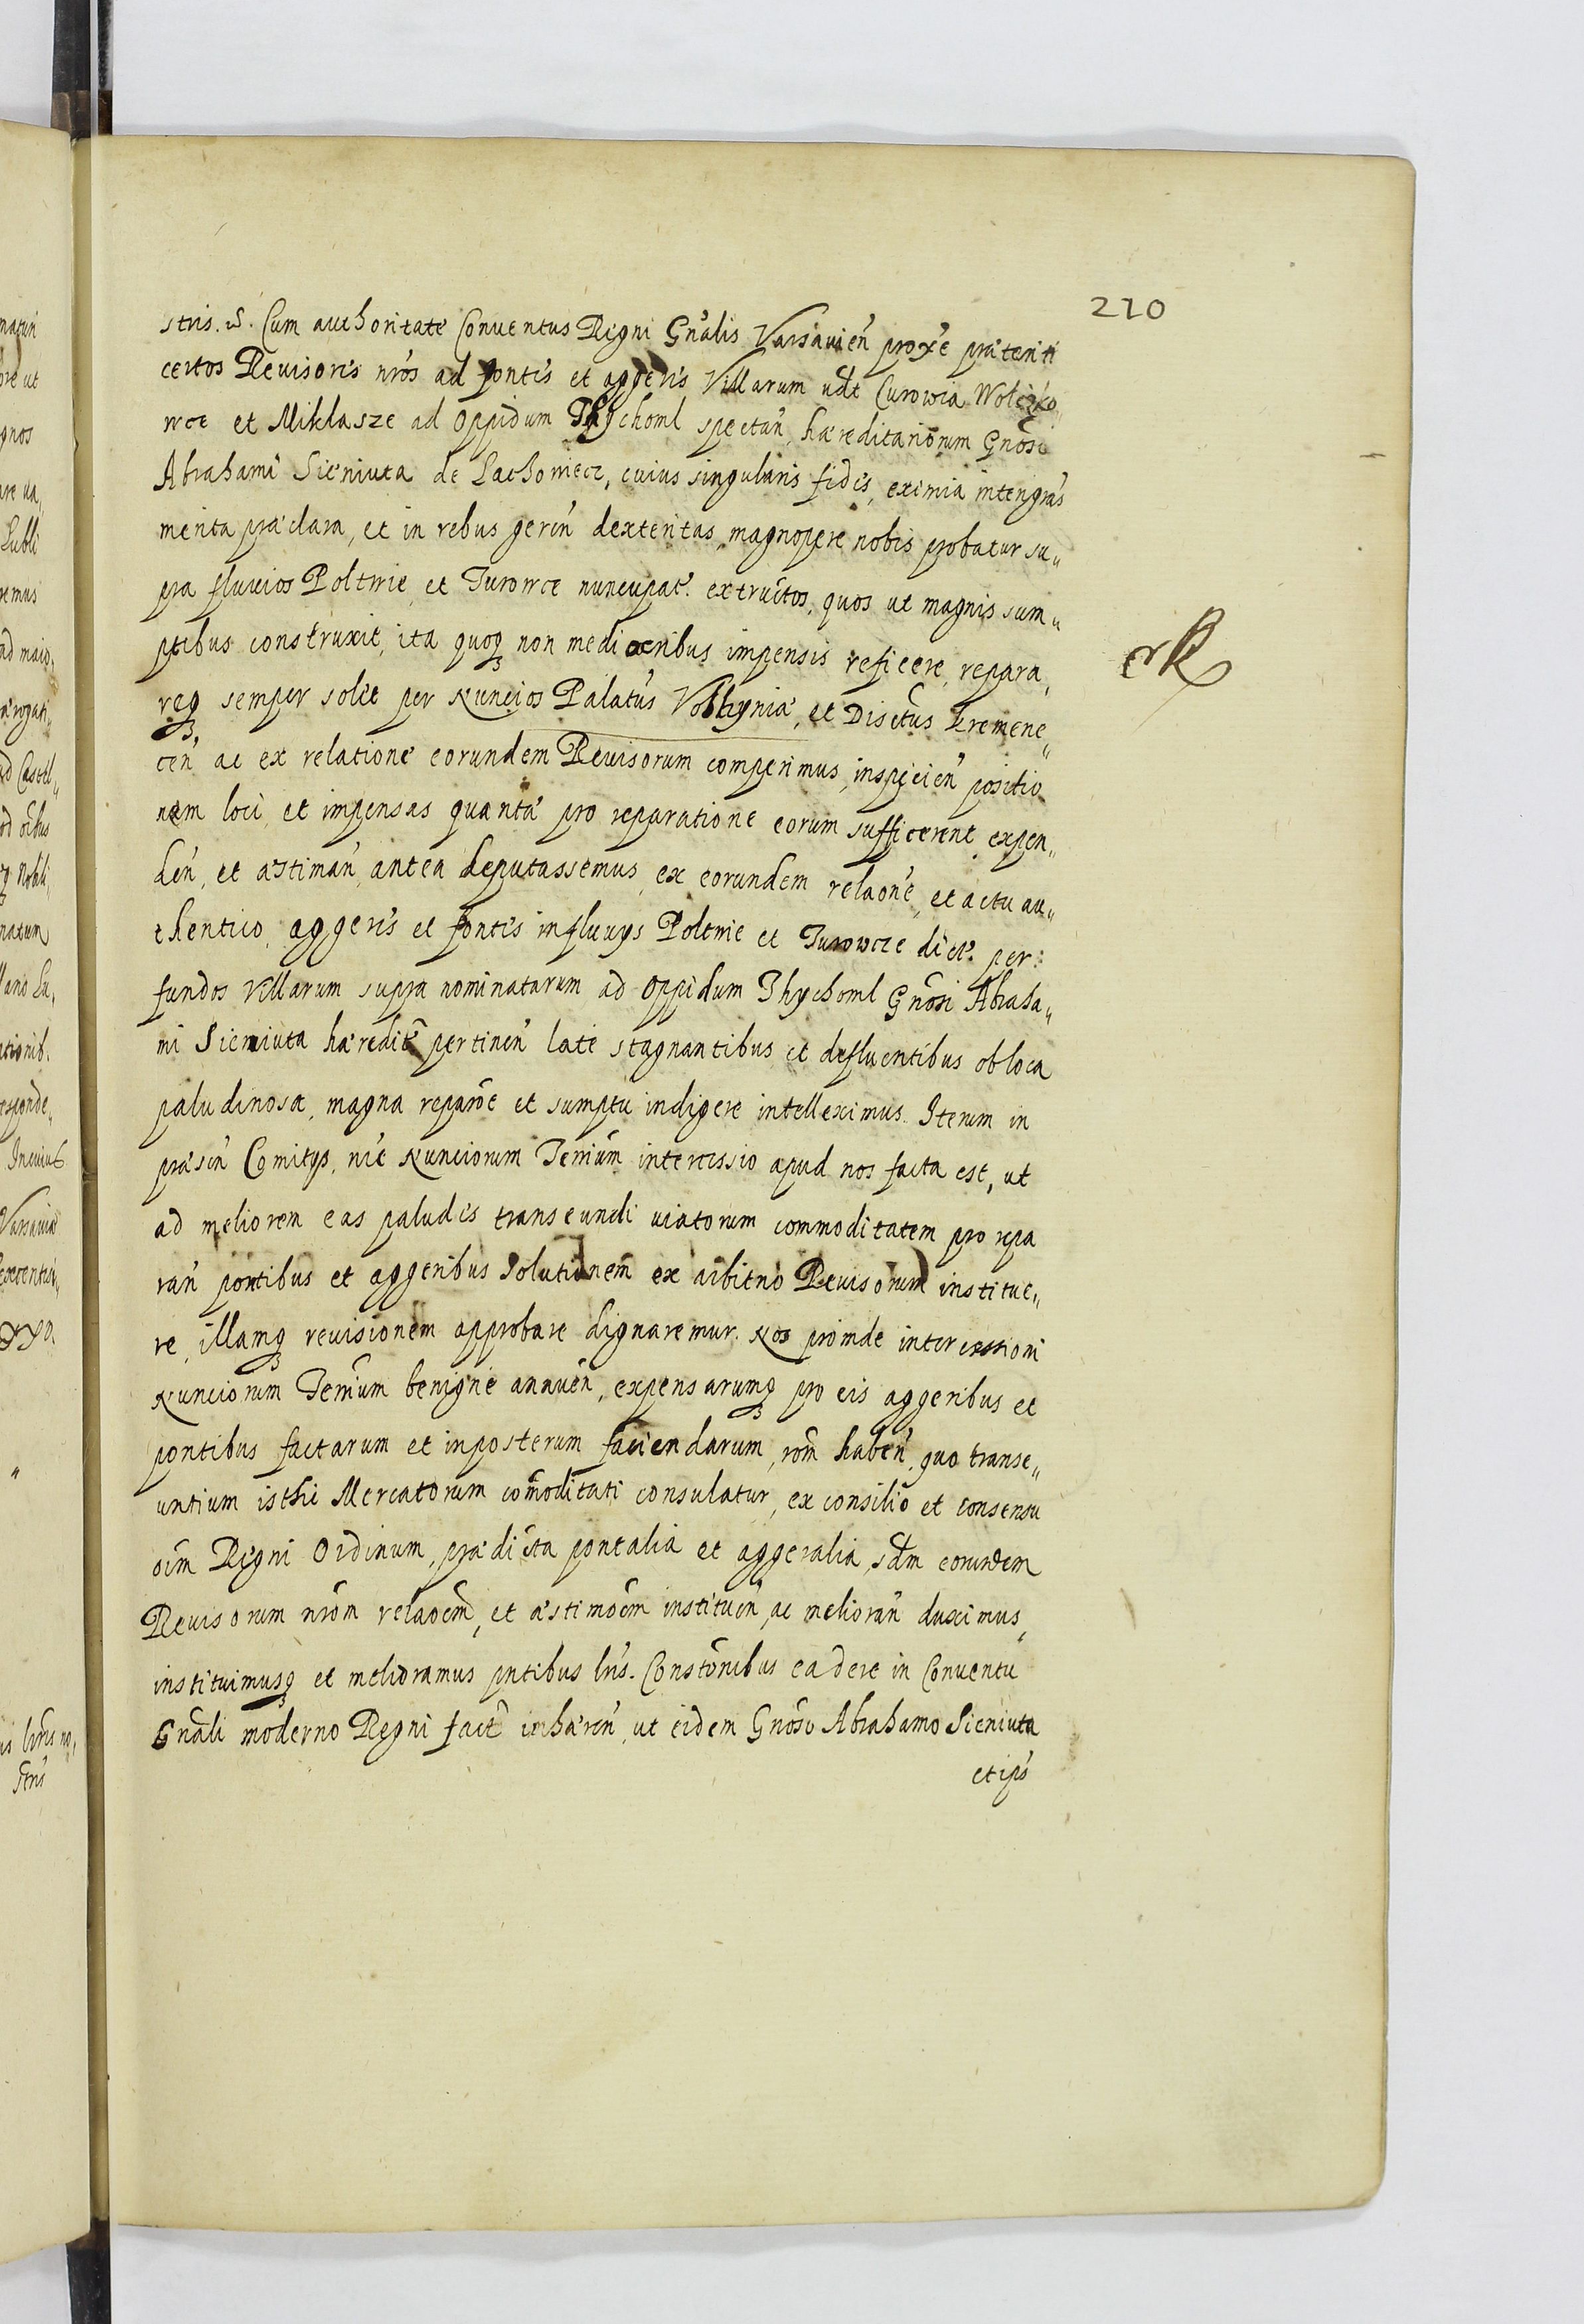 210
stris. &. Cum authoritate Conuentus Regni Gńalis Varsauień proxe præteriti
certos Reuisores nros ad pontes et aggeres Villarum vdt Curowia Wolczko,
wce et Miklasze ad Oppidum Thychoml spectań, hæreditariorum Gnosi
Abrahami Sieniuta de Lachowiecz, cuius singularis fides, eximia integras
merita præclara, et in rebus geren dexteritas, magnopere nobis probatur su„
pra fluuios Poltwie et Turowce nuncupat. extructos, quos ut magnis sum„
ptibus construxit, ita quoq non mediocribus impensis reficere, repara,
req semper solet per Nuncios Palatus Volhyniæ, et Disctus Kremene„
cen ac ex relatione eorundem Reuisorum comperimus, inspicien positio
nem loci, et impensas quantæ pro reparatione eorum sufficerent expen„
den, et æstiman, antea deputassemus, ex eorundem relaone, et actu au„
thentico, aggeres et pontes in fluuys Poltwie et Turowcze dict. per
fundos Villarum supra nominatarum ad Oppidum Thychoml Gnosi Abraha„
mi Sieniuta hæredit pertinen late stagnantibus et defluentibus ob loca
paludinosa, magna reparoe et sumptu indigere intelleximus. Iterum in
præsen Comitys, nre Nunciorum Terrium intercessio apud nos facta est, ut
ad meliorem eas paludes transeundi uiatorum commoditatem pro repa
ran pontibus et aggeribus Solutionem ex arbitrio Reuisorum institue„
re, illamq reuisionem approbare dignaremur. Nos proinde intercessioni
Nunciorum Terrium benigne annuen, expensarumq pro eis aggeribus et
pontibus factarum et inposterum faciendarum, rom haben, quo transe„
untium isthic Mercatorum comoditati consulatur, ex consilio et consensu
oim Regni Ordinum, prædicta pontalia et aggeralia, sdm eorundem
Reuisorum nrom relaoem, et æstimoem instituen, ac melioran duximus,
instituimusq et melioramus pntibus lris. Constonibus ea de re in Conuentu
Gnali moderno Regni fact inhæren, ut eidem Gnoso Abrahamo Sieniuta
et ips